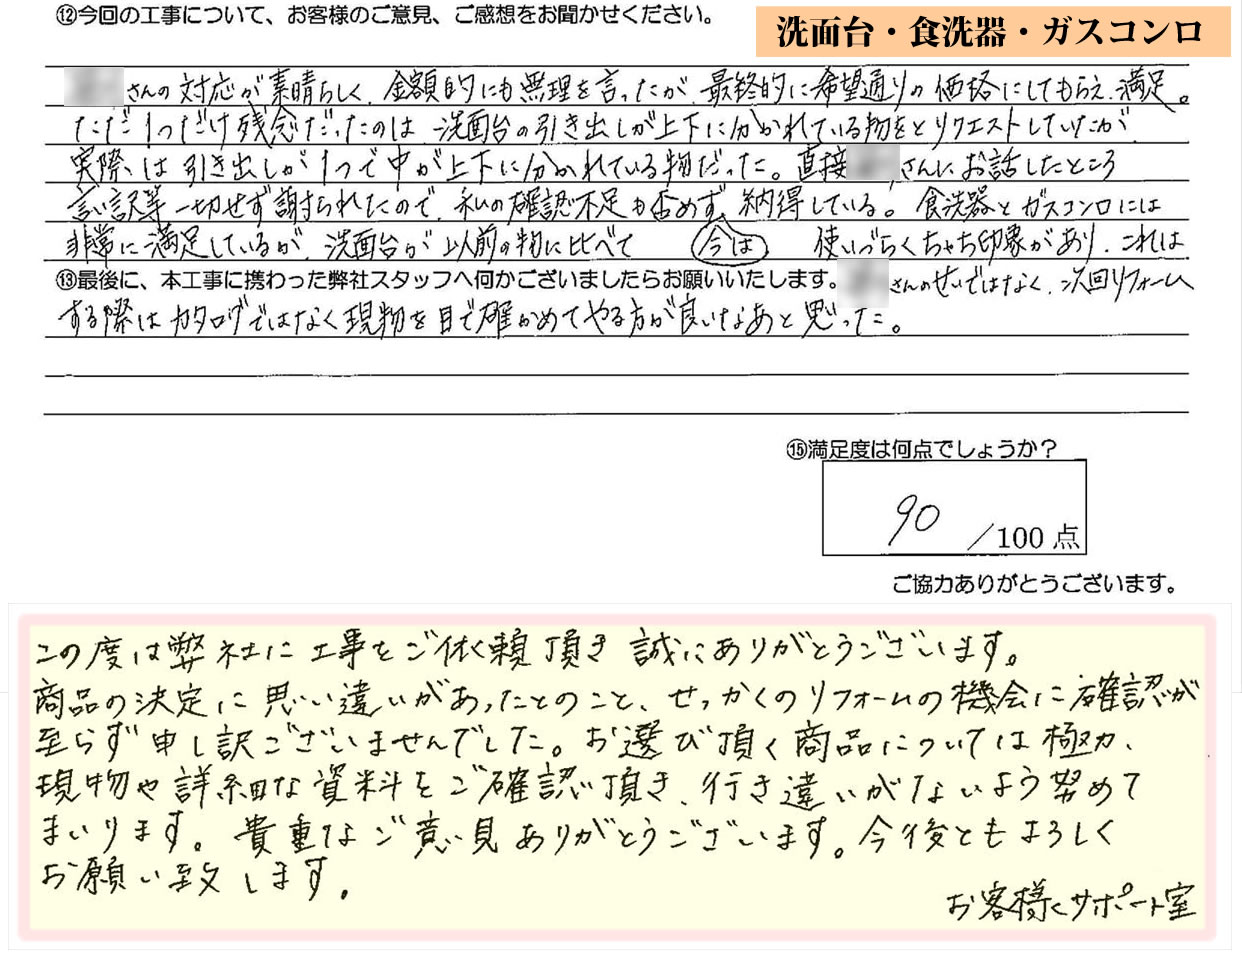 ⑫今回の工事について、お客様のご意見、ご感想をお聞かせください。
洗面台・食洗器・ガスコンロ
さんの対応が素晴らしく、金額的にも無理を言ったが、最終的に希望通りの価格にしてもらえ、満足。
ただ1つだけ残念だったのは、洗面台の引き出しが上下に分かれている物をとリクエストしていたが
実際は引き出しが1つで中が上下に分かれている物だった。直接 さんにお話したところ
言い訳等一切せず謝られたので、私の確認不足も否めず、納得している。食洗器とガスコンロには
非常に満足しているが、洗面台が以前の物に比べて 今は 使いづらくちゃち印象があり、これは
⑬最後に、本工事に携わった弊社スタッフへ何かございましたらお願いいたします。
さんのせいではなく、次回リフォーム
する際はカタログではなく現物を目で確かめてやる方が良いなあと思った。
⑮満足度は何点でしょうか？
90 /100点
ご協力ありがとうございます。
この度は弊社に工事をご依頼頂き誠にありがとうございます。
商品の決定に思い違いがあったとのこと、せっかくのリフォームの機会に確認が
至らず申し訳ございませんでした。お選び頂く商品については極力、
現物や詳細な資料をご確認頂き、行き違いがないよう努めて
まいります。貴重なご意見ありがとうございます。今後ともよろしく
お願い致します。
お客様サポート室